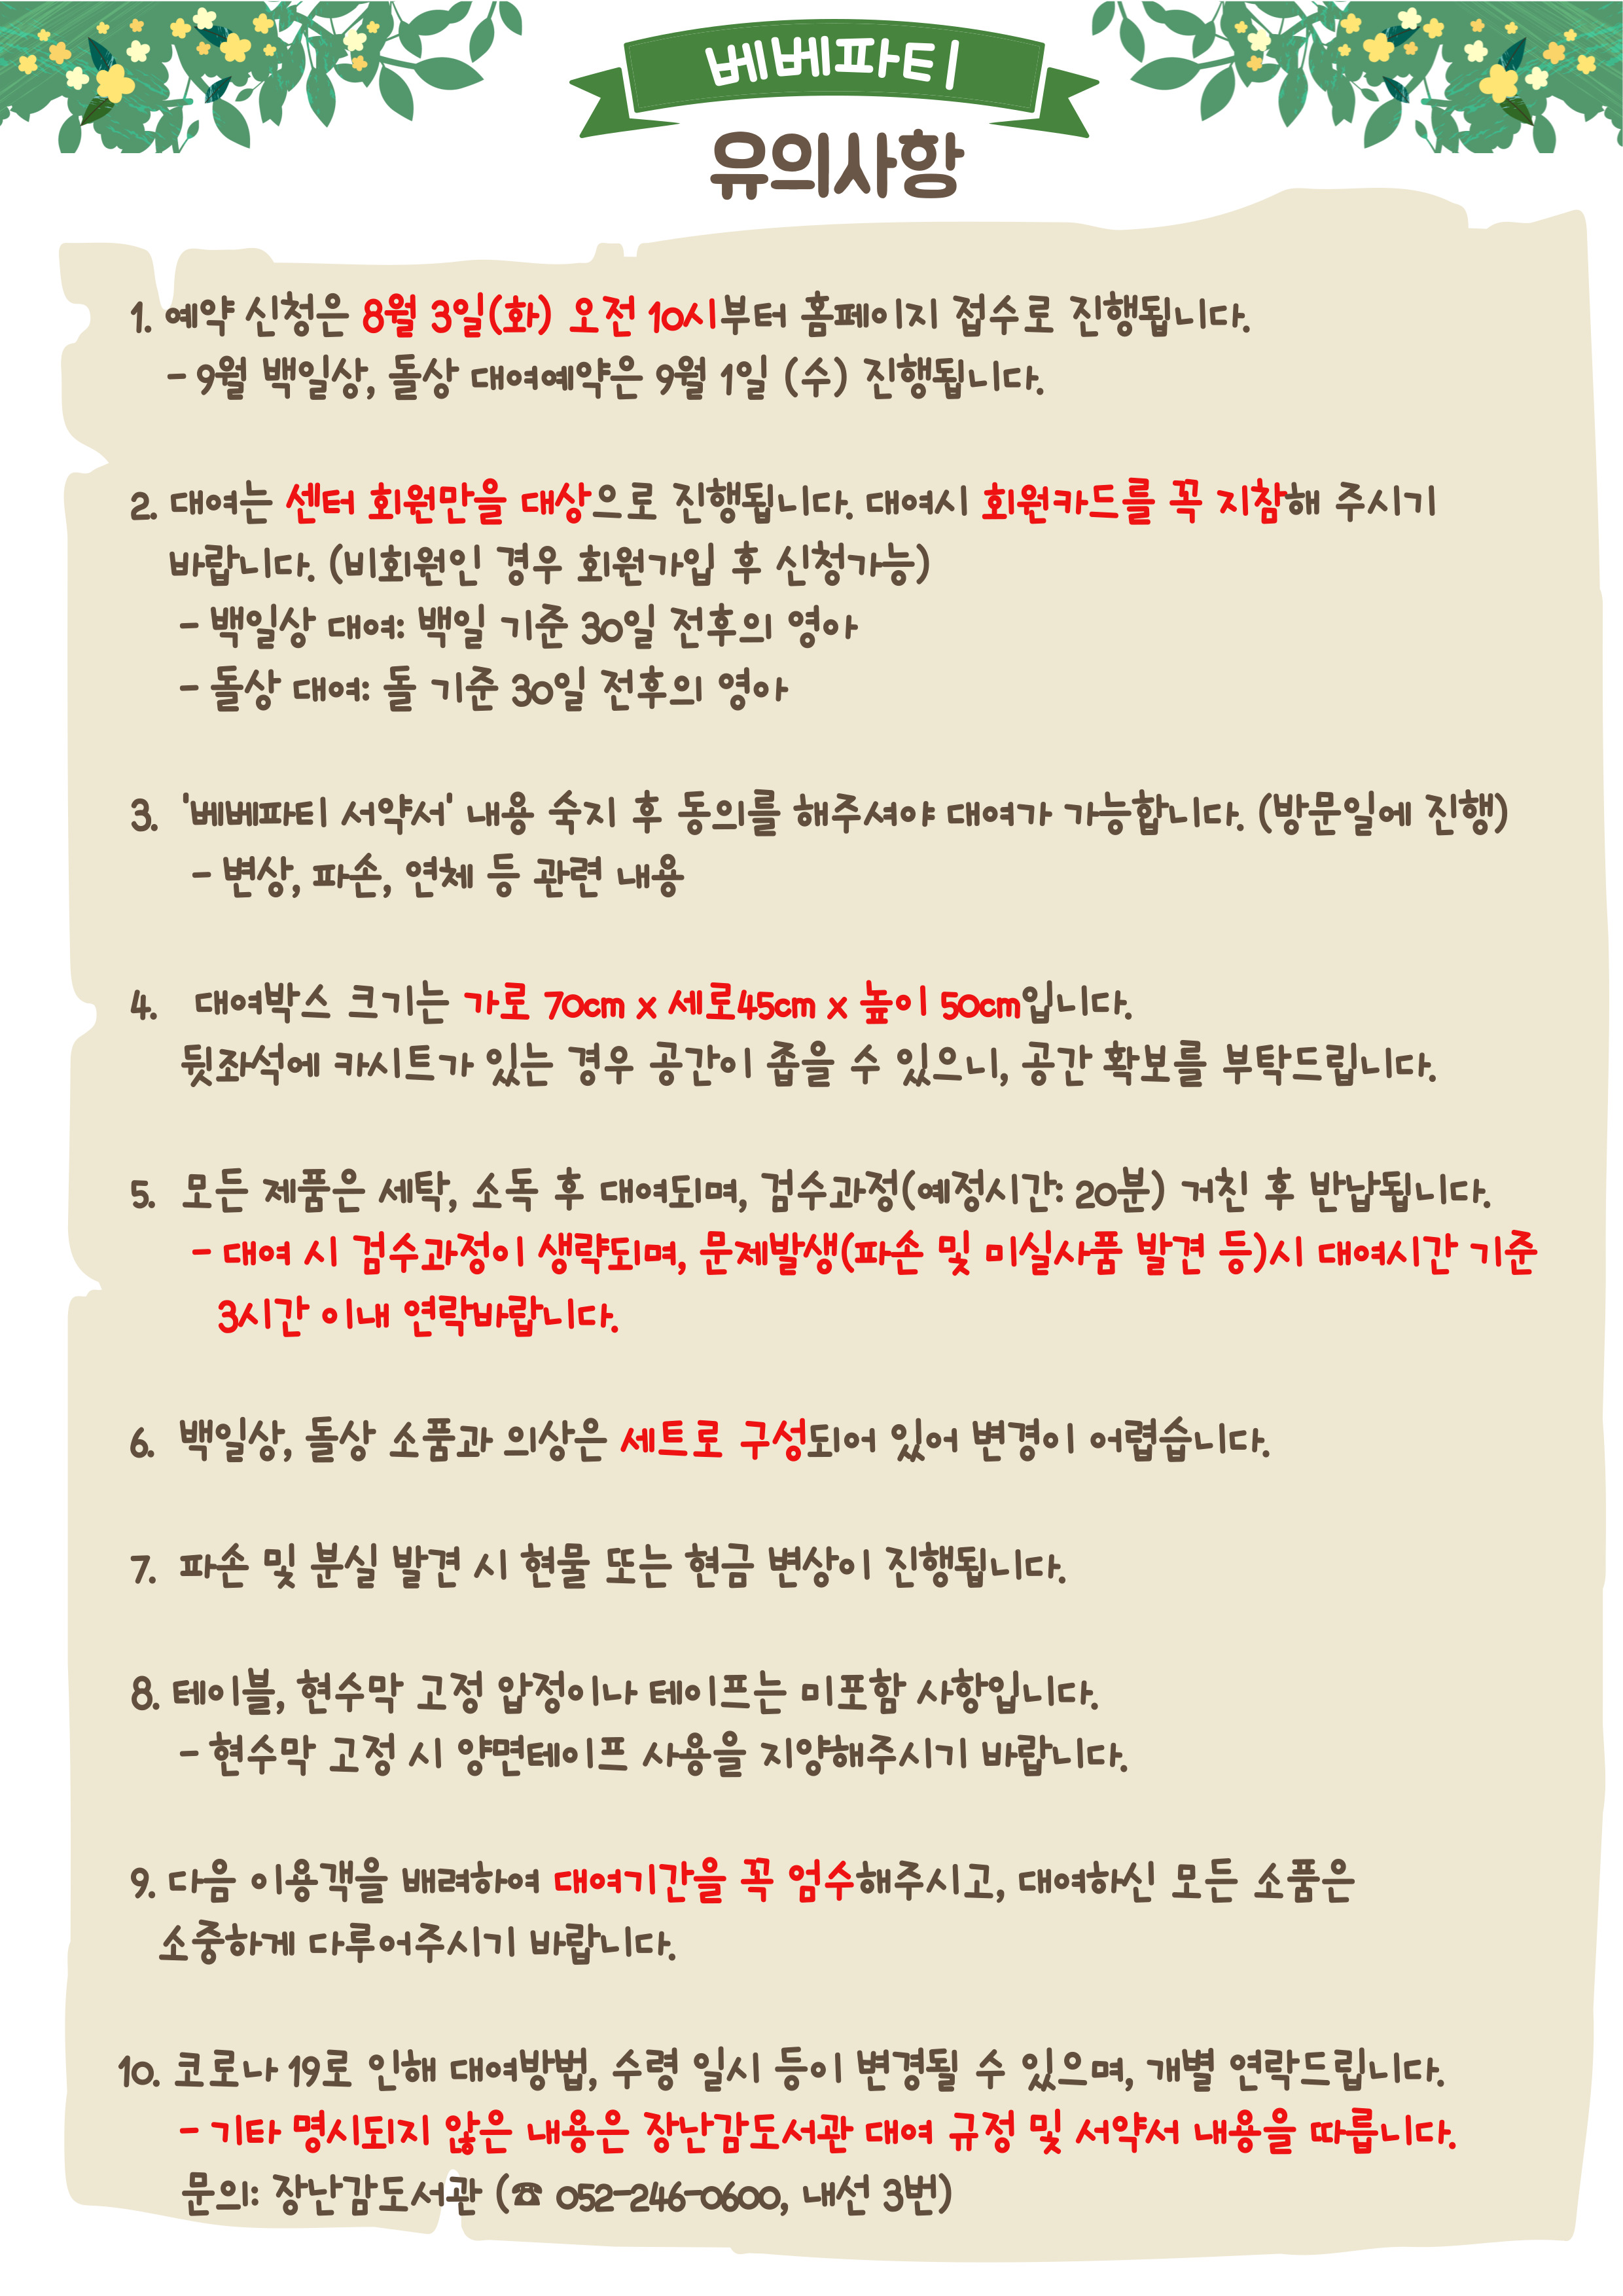 베베파티
유의사항
1. 예약 신청은 8월 3일(화) 오전 10시부터 홈페이지 접수로 진행됩니다.
- 9월 백일상, 돌상 대여예약은 9월 1일 (수) 진행됩니다.
2. 대여는 센터 회원만을 대상으로 진행됩니다. 대여시 회원카드를 꼭 지참해 주시기
바랍니다. (비회원인 경우 회원가입 후 신청가능)
- 백일상 대여: 백일 기준 30일 전후의 영아
- 돌상 대여: 돌 기준 30일 전후의 영아
3. '베베파티 서약서' 내용 숙지 후 동의를 해주셔야 대여가 가능합니다. (방문일에 진행)
- 변상, 파손, 연체 등 관련 내용
4. 대여박스 크기는 가로 70cm x 세로45cm x 높이 50cm입니다.
뒷좌석에 카시트가 있는 경우 공간이 좁을 수 있으니, 공간 확보를 부탁드립니다.
5. 모든 제품은 세탁, 소독 후 대여되며, 검수과정(예정시간: 20분) 거친 후 반납됩니다.
- 대여 시 검수과정이 생략되며, 문제발생(파손 및 미실사품 발견 등)시 대여시간 기준
3시간 이내 연락바랍니다.
6. 백일상, 돌상 소품과 의상은 세트로 구성되어 있어 변경이 어렵습니다.
7. 파손 및 분실 발견 시 현물 또는 현금 변상이 진행됩니다.
8. 테이블, 현수막 고정 압정이나 테이프는 미포함 사항입니다.
- 현수막 고정 시 양면테이프 사용을 지양해주시기 바랍니다.
9. 다음 이용객을 배려하여 대여기간을 꼭 엄수해주시고, 대여하신 모든 소품은
소중하게 다루어주시기 바랍니다.
10. 코로나 19로 인해 대여방법, 수령 일시 등이 변경될 수 있으며, 개별 연락드립니다.
- 기타 명시되지 않은 내용은 장난감도서관 대여 규정 및 서약서 내용을 따릅니다.
문의: 장난감도서관 (☎ 052-246-0600, 내선 3번)